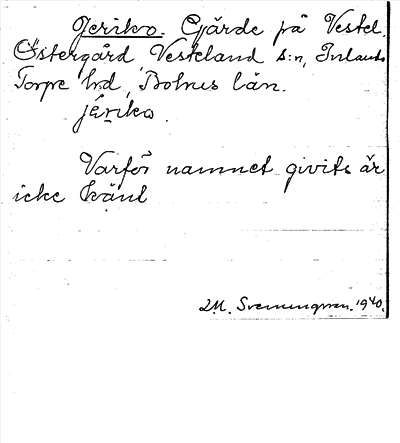 Jeriko. Gjärde på Vestel.
Östergård Vesteland s:n, Inlands
Torpe hd, Bohus län.
jériko.
Varför namnet givits är
icke känt
Svenningsson. 1940.